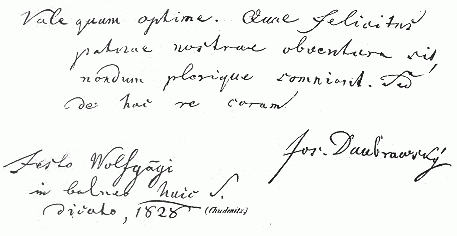 Vale quam optime. Quae felicitas
patriae nostrae obventura sit,
nondum plerique somniant. Sed
de hac re coram
Jos. Daubrawský
Festo Wolfgāgi
in balneo huic S.
dicato, 1828 (Chudenitz)